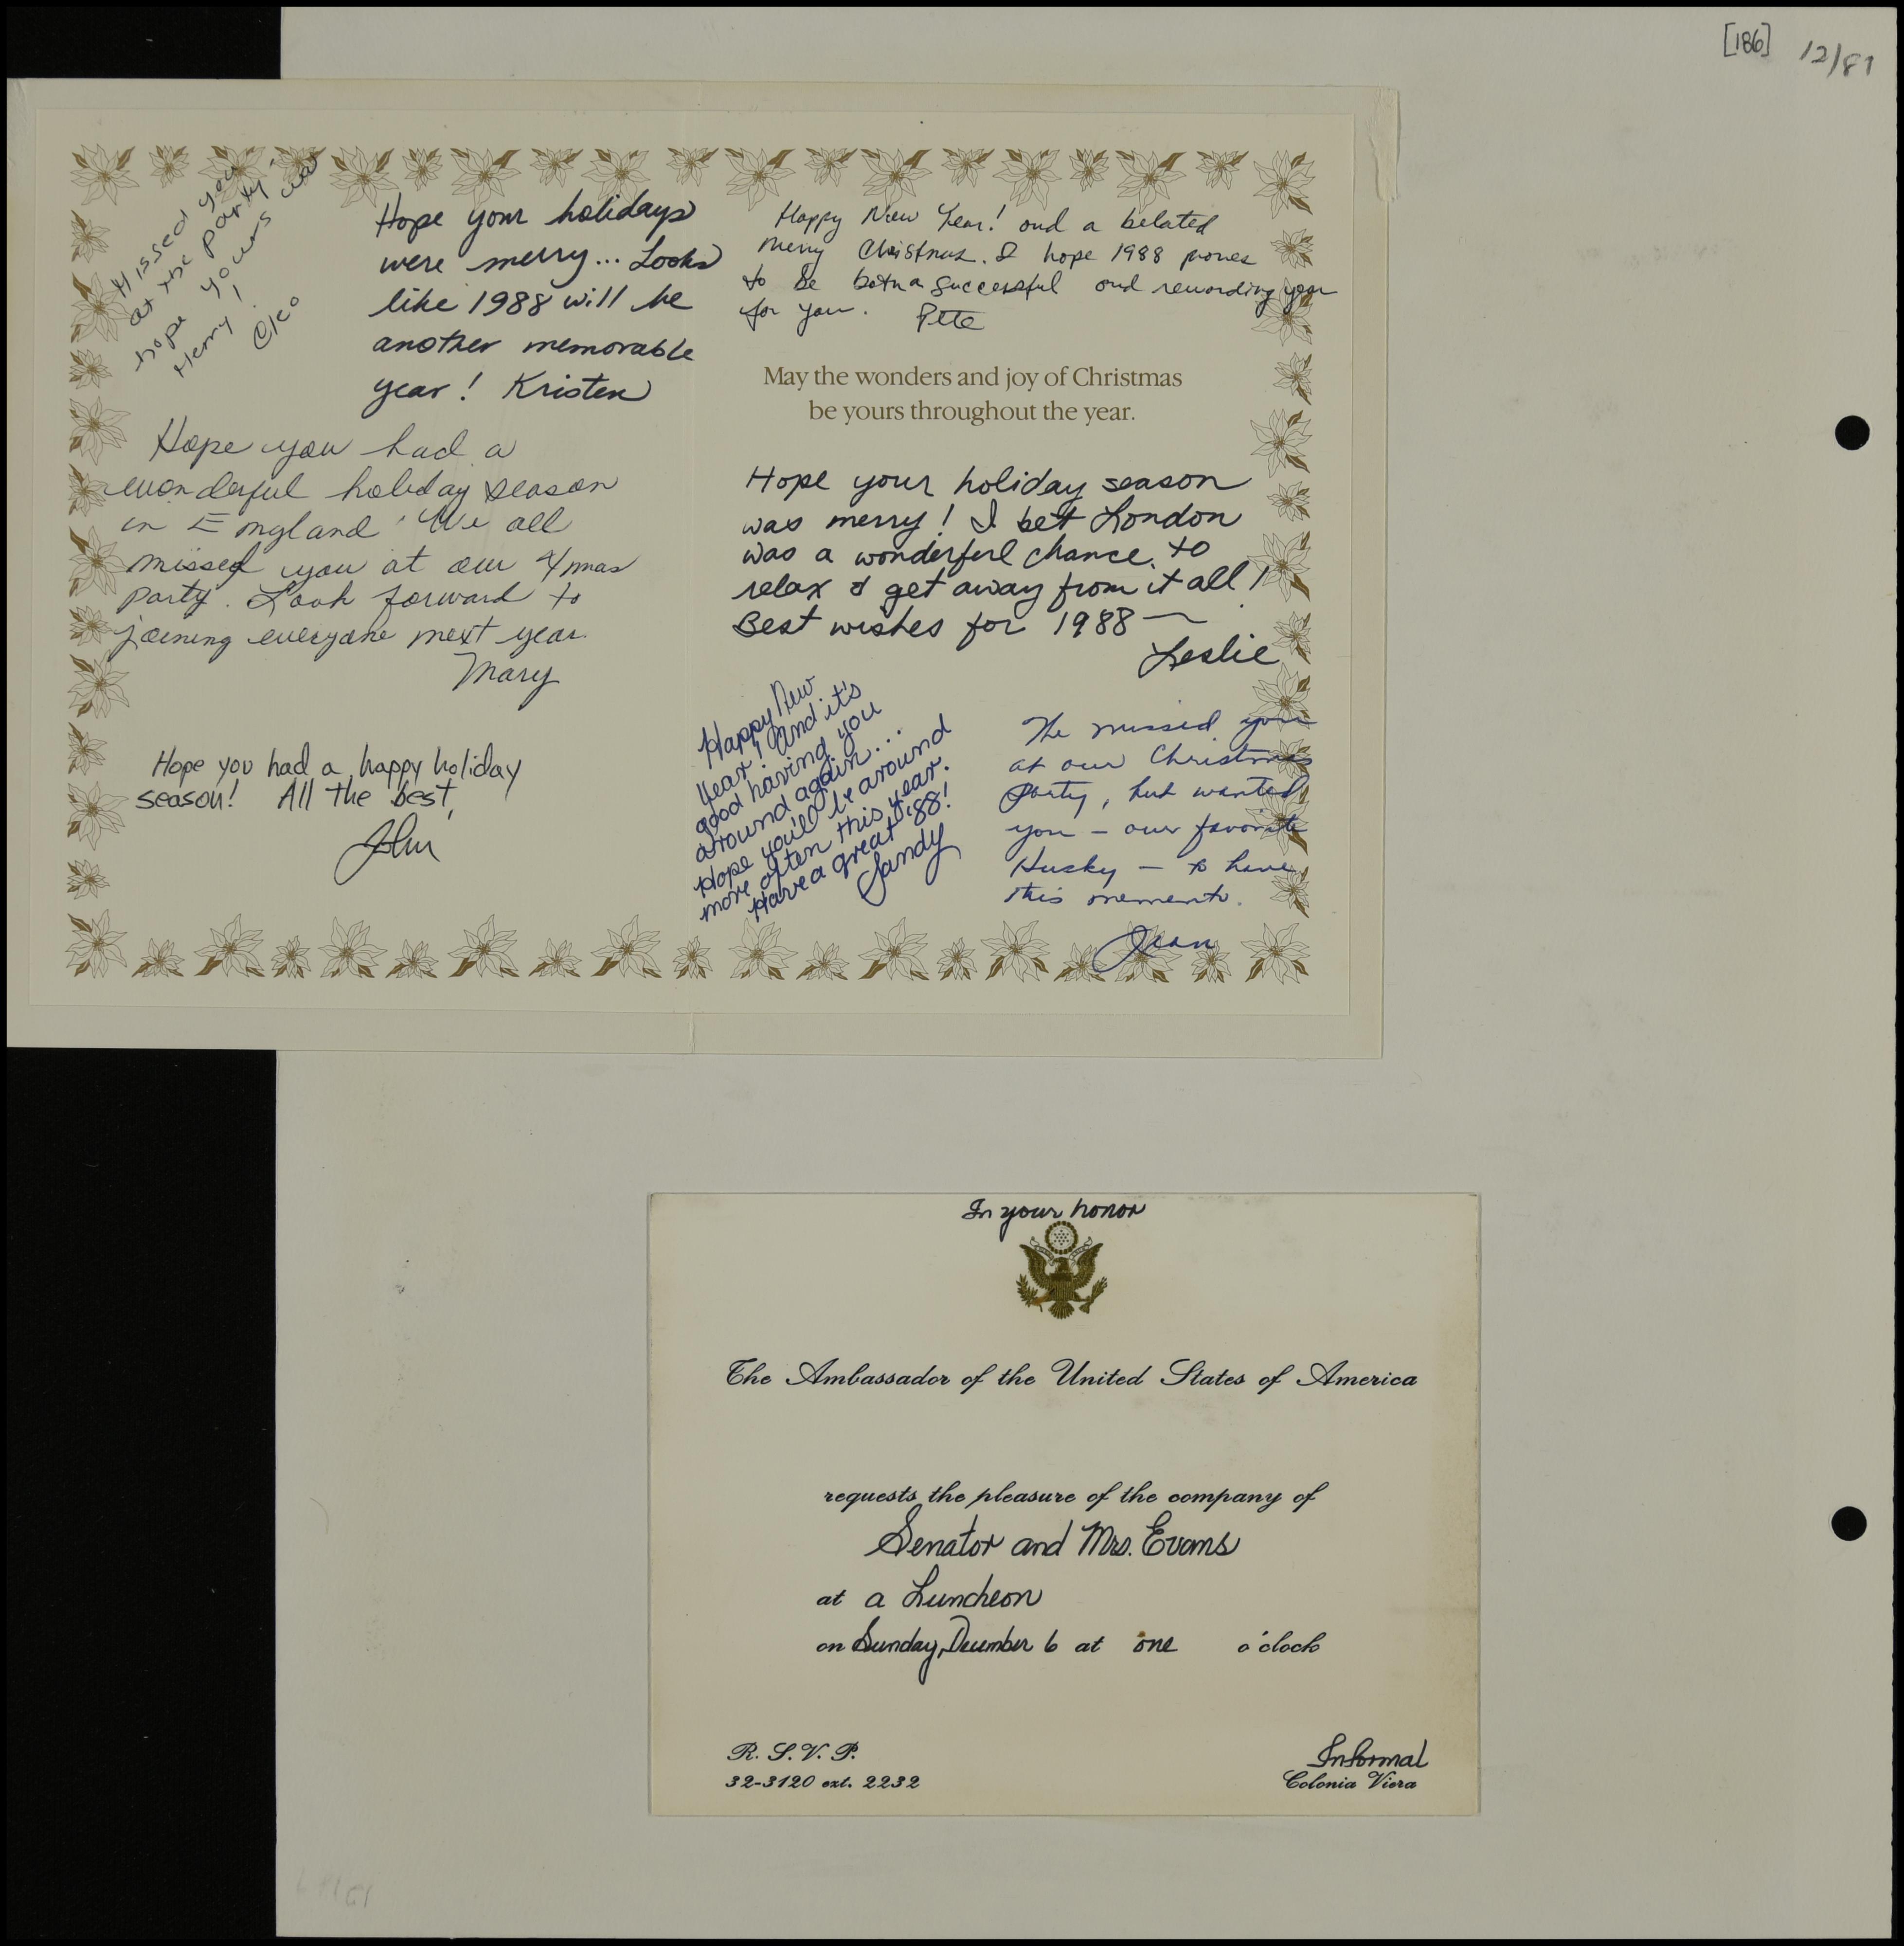 [186] 12/87
Missed you
at the party -
hope yours was
Merry!
Cleo
Hope your holidays
were merry... Looks
like 1988 will be
another memorable
year! Kristen
Hope you had a
wonderful holiday season
in England. We all
missed you at our Xmas
party. Look forward to
joining everyone next year.
Mary
Hope you had a happy holiday
season! All the best,
John
Happy New Year! and a belated
Merry Christmas. I hope 1988 proves
to be both a successful and rewarding year
for you. Pete
May the wonders and joy of Christmas
be yours throughout the year.
Hope your holiday season
was merry! I bet London
was a wonderful chance to
relax & get away from it all!
Best wishes for 1988 —
Leslie
Happy New
Year! And it's
good having you
around again...
Hope you'll be around
more often this year.
Have a great '88!
Sandy
We missed you
at our Christmas
party, but wanted
you - our favorite
Husky - to have
this memento.
Jean
In your honor
The Ambassador of the United States of America
requests the pleasure of the company of
Senator and Mrs. Evans
at a Luncheon
on Sunday, December 6 at one o'clock
R. S. V. P.
32-3120 ext. 2232
Informal
Colonia Viera